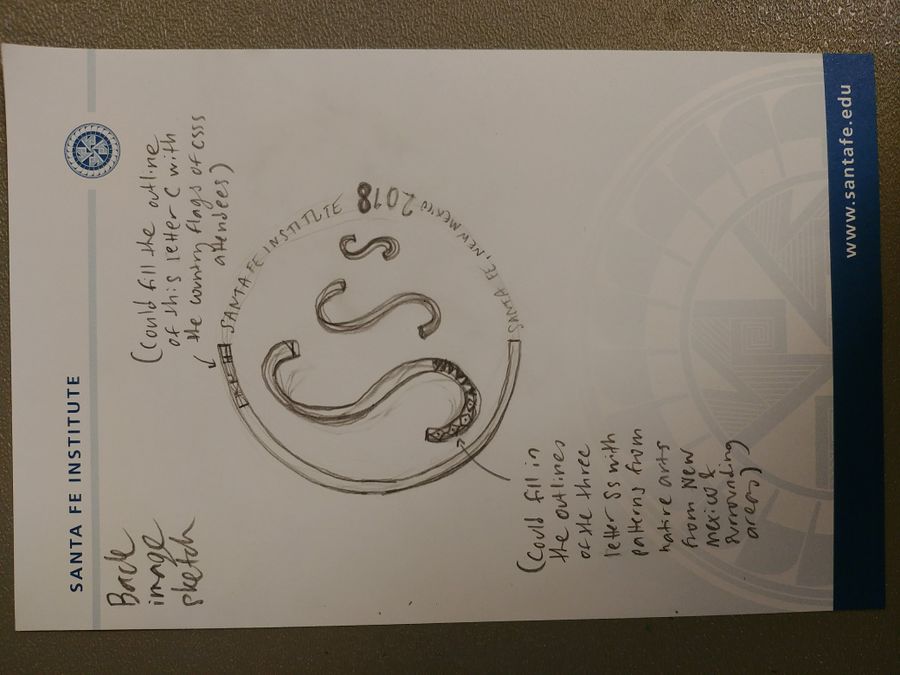 SANTA FE INSTITUTE
Back
image
sketch
(could fill the outline
of this letter C with
the country flags of CSSS
attendees)
SANTA FE INSTITUTE 2018
SANTA FE, NEW MEXICO 2018
S S S
(could fill in
the outlines
of the three
letter Ss with
patterns from
native arts
from New
Mexico &
surrounding
areas)
www.santafe.edu